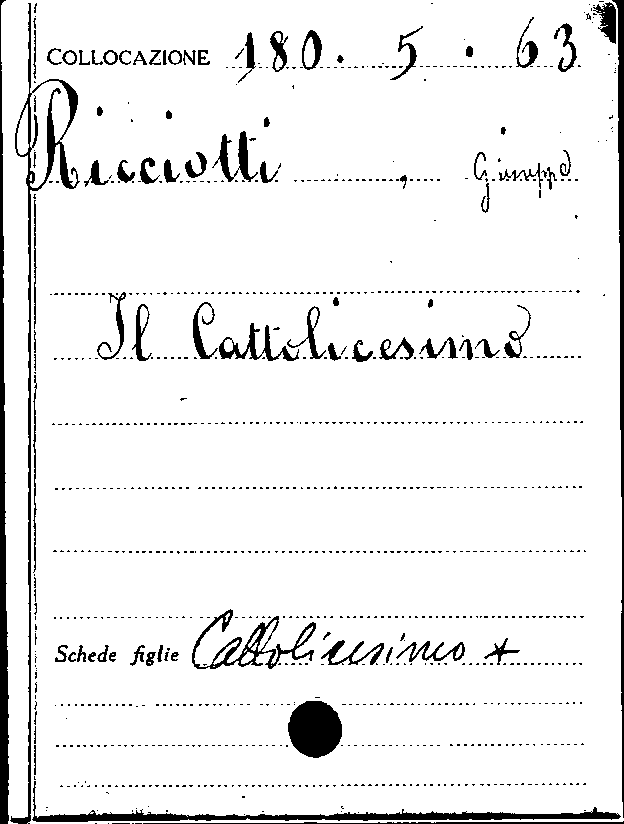 COLLOCAZIONE 180. 5. 63
Ricciotti, Giuseppe
Il Cattolicesimo
Schede figlie Cattolicesimo *